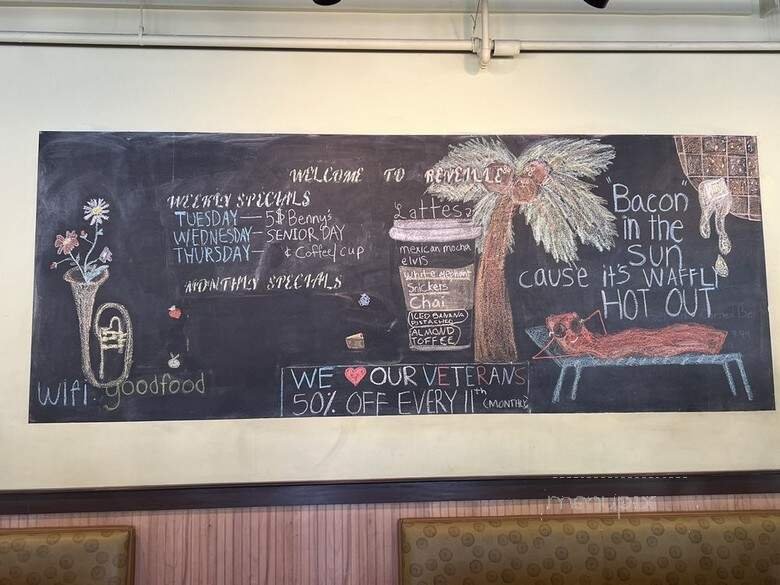 WELCOME TO REVEILLE
WEEKLY SPECIALS
TUESDAY — 5$ Benny's
WEDNESDAY - SENIOR DAY
THURSDAY — ¢ Coffee/cup
MONTHLY SPECIALS
wifi: goodfood
Lattes
mexican mocha
elvis
white elephant
Snickers
Chai
ICED BANANA
PISTACHIO
ALMOND
TOFFEE
WE ❤ OUR VETERANS
50% OFF EVERY 11th (MONTHLY)
"Bacon"
in the
sun
cause it's WAFFL
HOT OUT
menupix